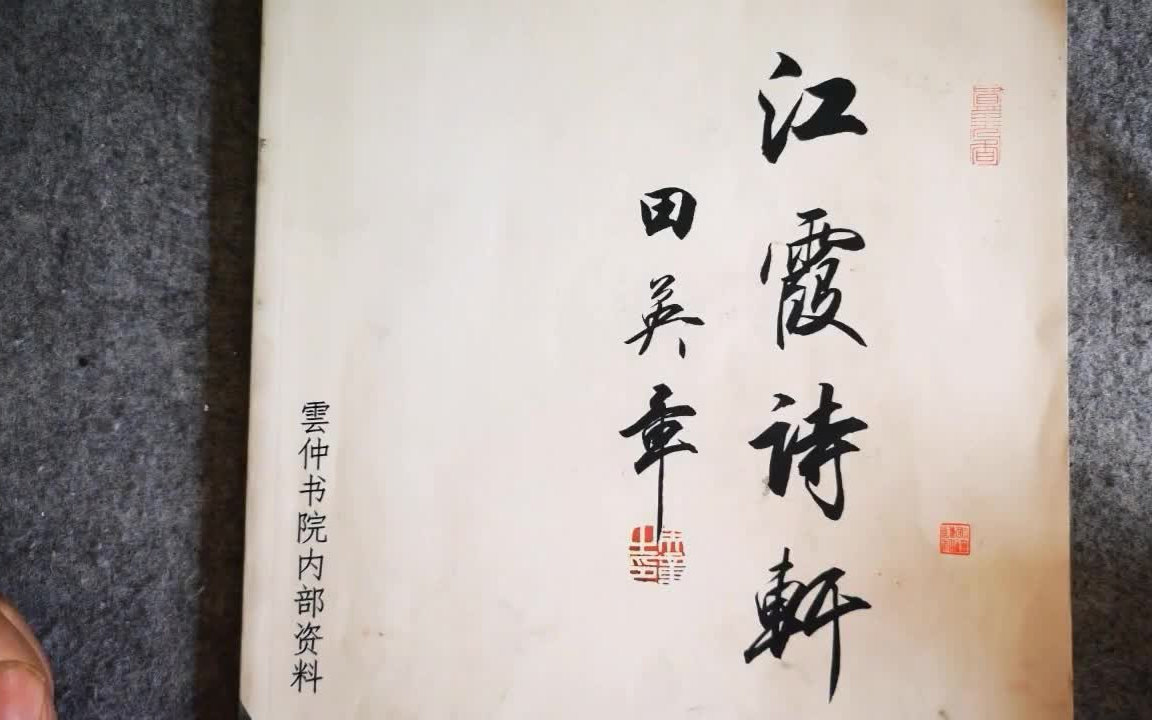 江霞诗軒
田英章
雲仲书院内部资料